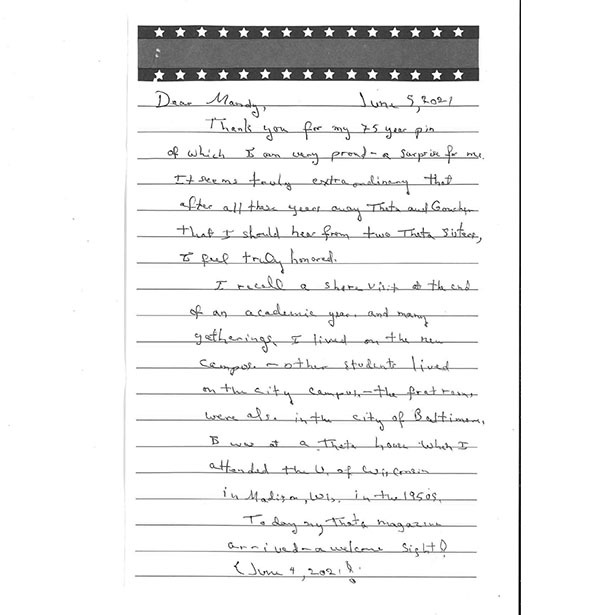 Dear Mandy, June 5, 2021
Thank you for my 75 year pin
of which I am very proud - a surprise for me.
It seems truly extraordinary that
after all these years away Theta and Goucher
that I should hear from two Theta sisters,
I feel truly honored.
I recall a shore visit at the end
of an academic year, and many
gatherings. I lived on the new
campus - other students lived
on the city campus. - the frat rooms
were also in the city of Baltimore.
I was at a Theta house when I
attended the U. of Wisconsin
in Madison, Wis. in the 1950s.
Today my Theta magazine
arrived - a welcome sight!
(June 4, 2021)!